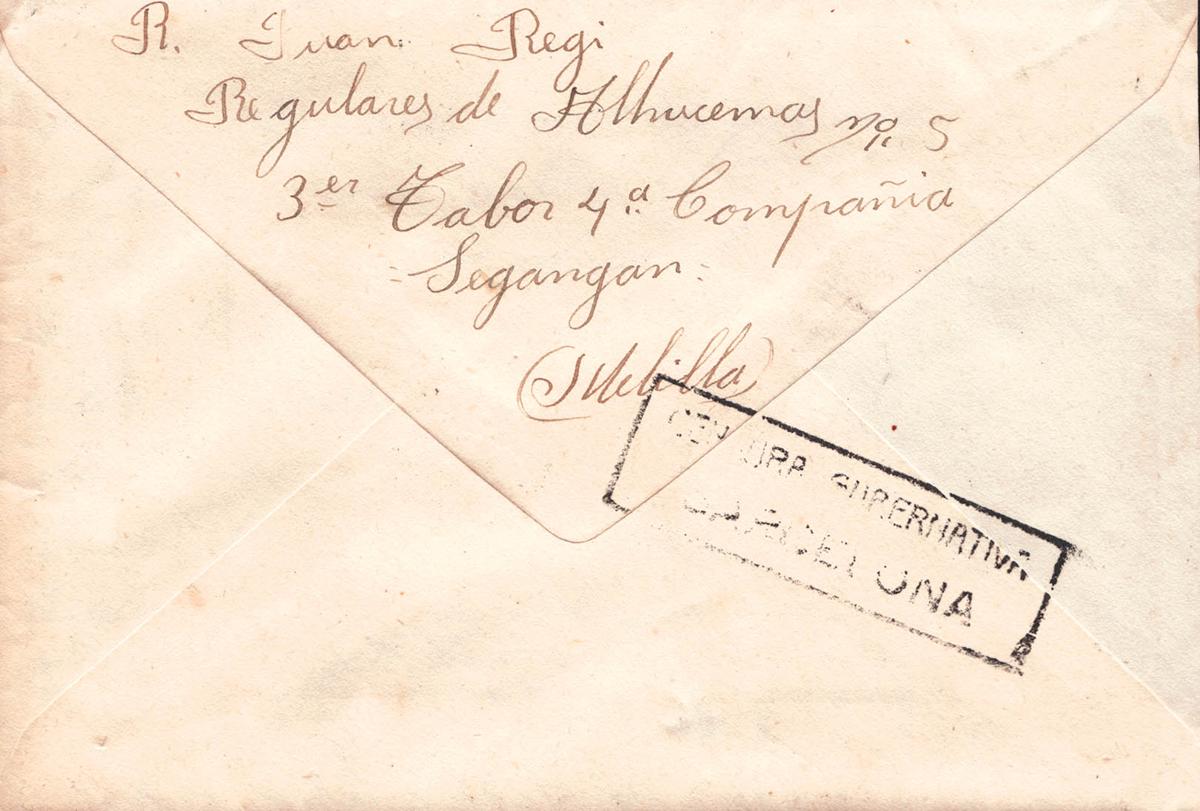 R. Juan Regi
Regulares de Alhucemas nº 5
3er Tabor 4ª Compañia
= Segangan =
(Melilla)
CENSURA GUBERNATIVA
BARCELONA